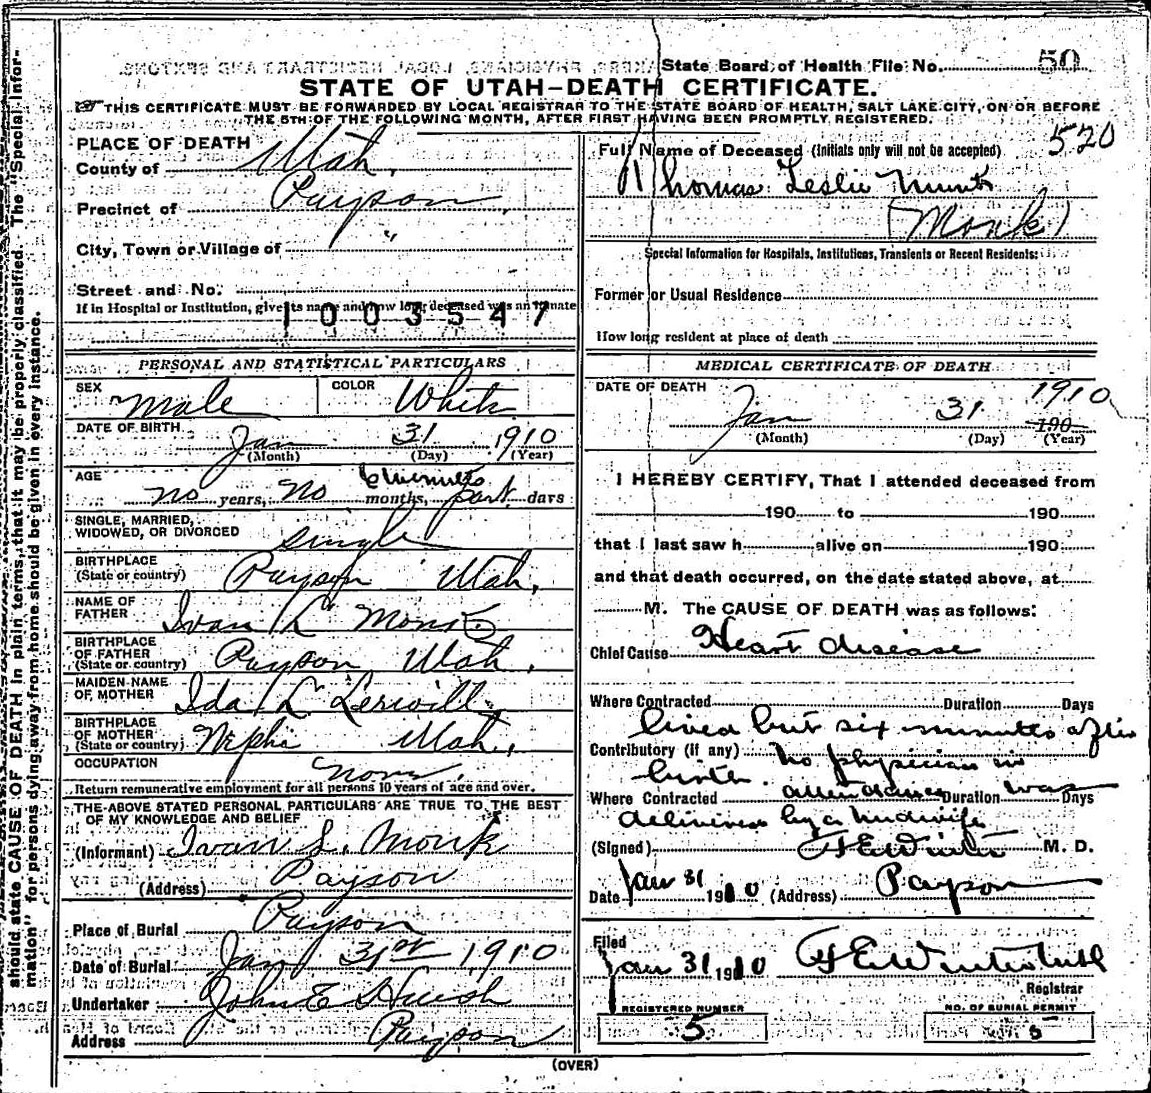 State Board of Health File No. 50
STATE OF UTAH-DEATH CERTIFICATE.
THIS CERTIFICATE MUST BE FORWARDED BY LOCAL REGISTRAR TO THE STATE BOARD OF HEALTH, SALT LAKE CITY, ON OR BEFORE
THE 5TH OF THE FOLLOWING MONTH, AFTER FIRST HAVING BEEN PROMPTLY REGISTERED.
520
PLACE OF DEATH
County of Utah,
Precinct of Payson,
City, Town or Village of "
Street and No.
If in Hospital or Institution, give its name and how long deceased was an inmate
1003547
Full Name of Deceased (Initials only will not be accepted)
Thomas Leslie
(Monk)
Special Information for Hospitals, Institutions, Transients or Recent Residents:
Former or Usual Residence
How long resident at place of death
PERSONAL AND STATISTICAL PARTICULARS
SEX Male COLOR White
DATE OF BIRTH
Jan 31 1910
(Month) (Day) (Year)
AGE
6 minutes
no years, No months, part days
SINGLE, MARRIED,
WIDOWED, OR DIVORCED single
BIRTHPLACE
(State or country) Payson Utah,
NAME OF
FATHER Ivan L Monk
BIRTHPLACE
OF FATHER
(State or country) Payson Utah.
MAIDEN NAME
OF MOTHER Ida L Lerwill
BIRTHPLACE
OF MOTHER
(State or country) Nephi Utah,
OCCUPATION None.
Return remunerative employment for all persons 10 years of age and over.
THE ABOVE STATED PERSONAL PARTICULARS ARE TRUE TO THE BEST
OF MY KNOWLEDGE AND BELIEF
(Informant) Ivan L. Monk
(Address) Payson
Place of Burial Payson
Date of Burial Jan 31st 1910
Undertaker John E Huish
Address Payson
MEDICAL CERTIFICATE OF DEATH
DATE OF DEATH 1910
Jan 31 190
(Month) (Day) (Year)
I HEREBY CERTIFY, That I attended deceased from
190 to 190
that I last saw h alive on 190
and that death occurred, on the date stated above, at
M. The CAUSE OF DEATH was as follows:
Chief Cause Heart disease
Where Contracted Duration Days
lived but six minutes after
Contributory (if any) no physician in
birth. attendance was
Where Contracted Duration Days
delivered by a midwife
(Signed) F E Winter M. D.
Date Jan 31 1910 (Address) Payson
Filed
Jan 31 1910 F E Winter
Registrar
REGISTERED NUMBER
5
NO. OF BURIAL PERMIT
5
(OVER)
should state CAUSE OF DEATH in plain terms, that it may be properly classified. The "Special Infor-
mation" for persons dying away from home should be given in every instance.